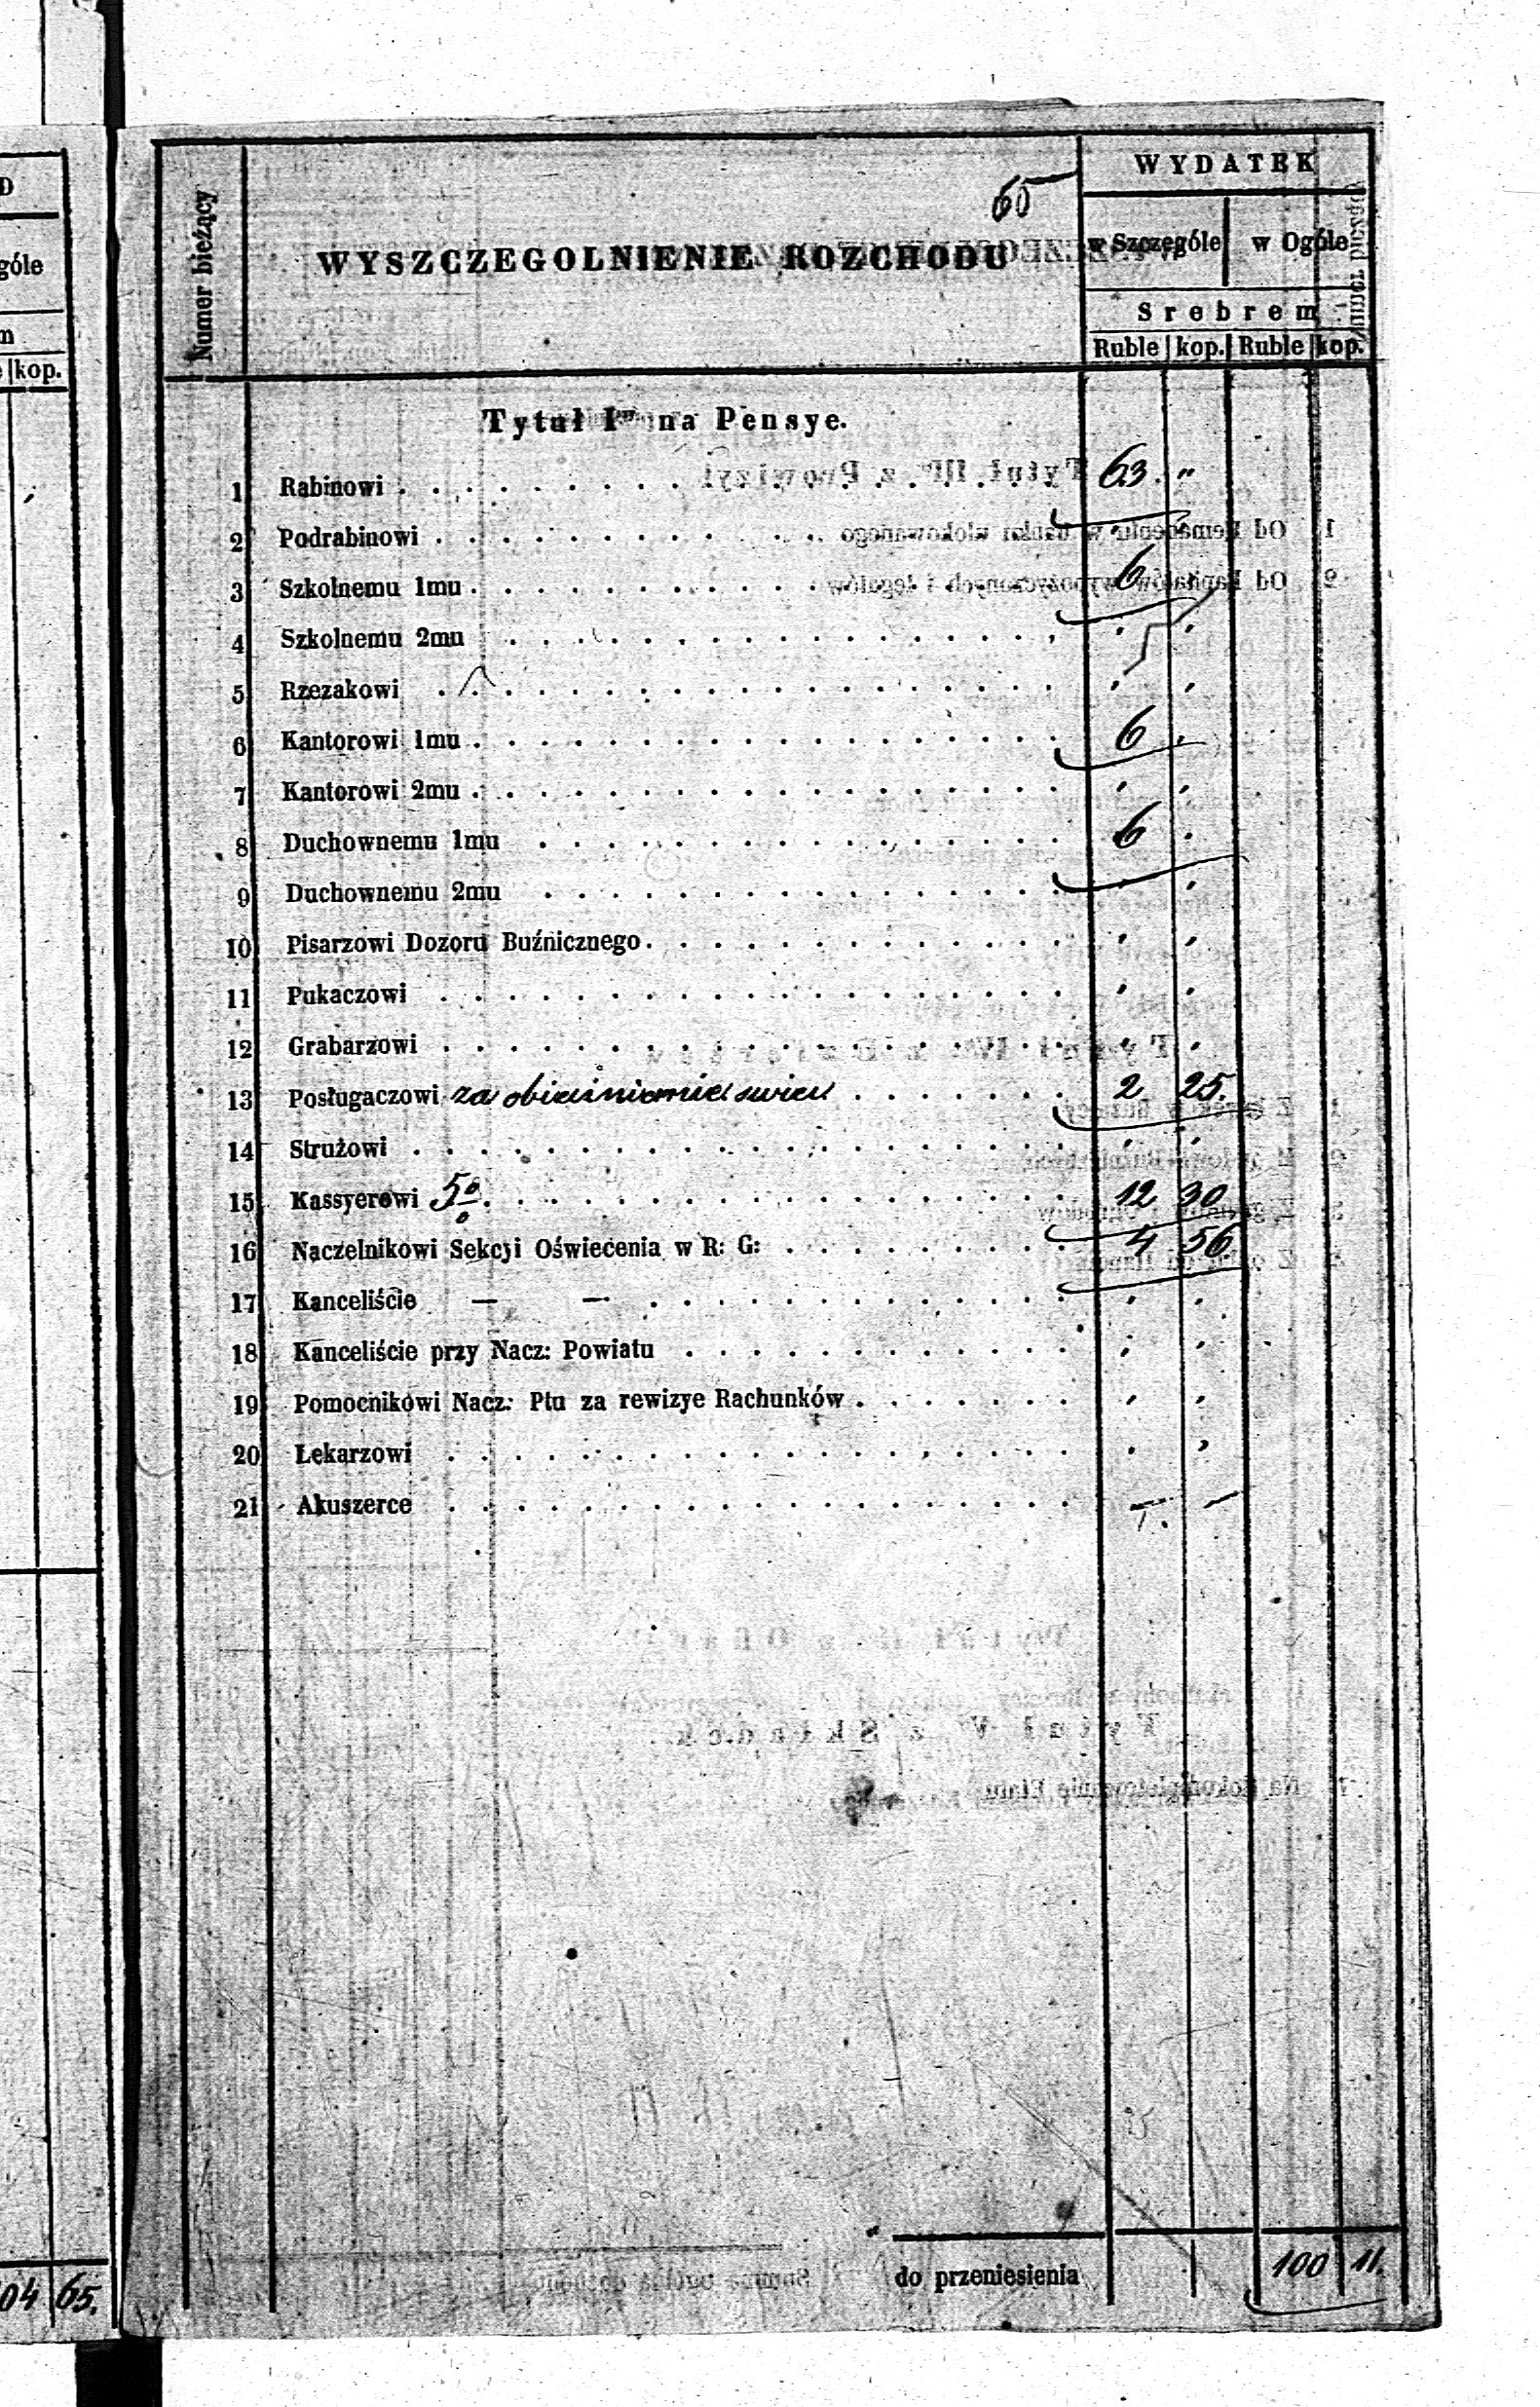 D
góle
m
kop.
04 65.
65
Numer bieżący
WYSZCZEGOLNIENIE ROZCHODU
WYDATEK
w Szczególe w Ogóle
Srebrem
Ruble kop. Ruble kop.
Tytuł Iwy na Pensye.
1 Rabinowi . . . . . . . . . 63 . "
2 Podrabinowi . . . . . . . . .
3 Szkolnemu 1mu . . . . . . . . . 6
4 Szkolnemu 2mu . . . . . . . . .
5 Rzezakowi . . . . . . . . .
6 Kantorowi 1mu . . . . . . . . . 6 .
7 Kantorowi 2mu . . . . . . . . .
8 Duchownemu 1mu . . . . . . . . . 6 .
9 Duchownemu 2mu . . . . . . . . .
10 Pisarzowi Dozoru Buźnicznego . . . . . . . . .
11 Pukaczowi . . . . . . . . .
12 Grabarzowi . . . . . . . . .
13 Posługaczowi za . . . . . . . 2 25.
14 Strużowi . . . . . . . . .
15 Kassyerowi 5% . . . . . . . . . 12 30
16 Naczelnikowi Sekcji Oświecenia w R: G: . . . . . . . . . 4 56
17 Kanceliście — — . . . . . . . . .
18 Kanceliście przy Nacz: Powiatu . . . . . . . . .
19 Pomocnikowi Nacz: Ptu za rewizye Rachunków . . . . . . .
20 Lekarzowi . . . . . . . . .
21 Akuszerce . . . . . . . . . — —
do przeniesienia 100 11.